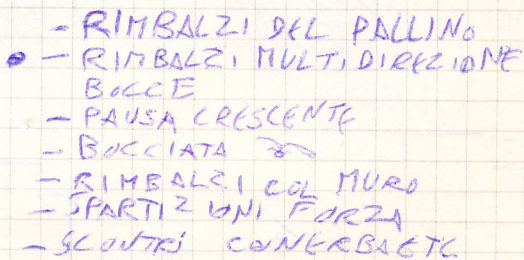 - RIMBALZI DEL PALLINO
- RIMBALZI MULTIDIREZIONE
BOCCE
- PAUSA CRESCENTE
- BOCCIATA
- RIMBALZI COL MURO
- SPARTIZIONI FORZA
- SCONTRI